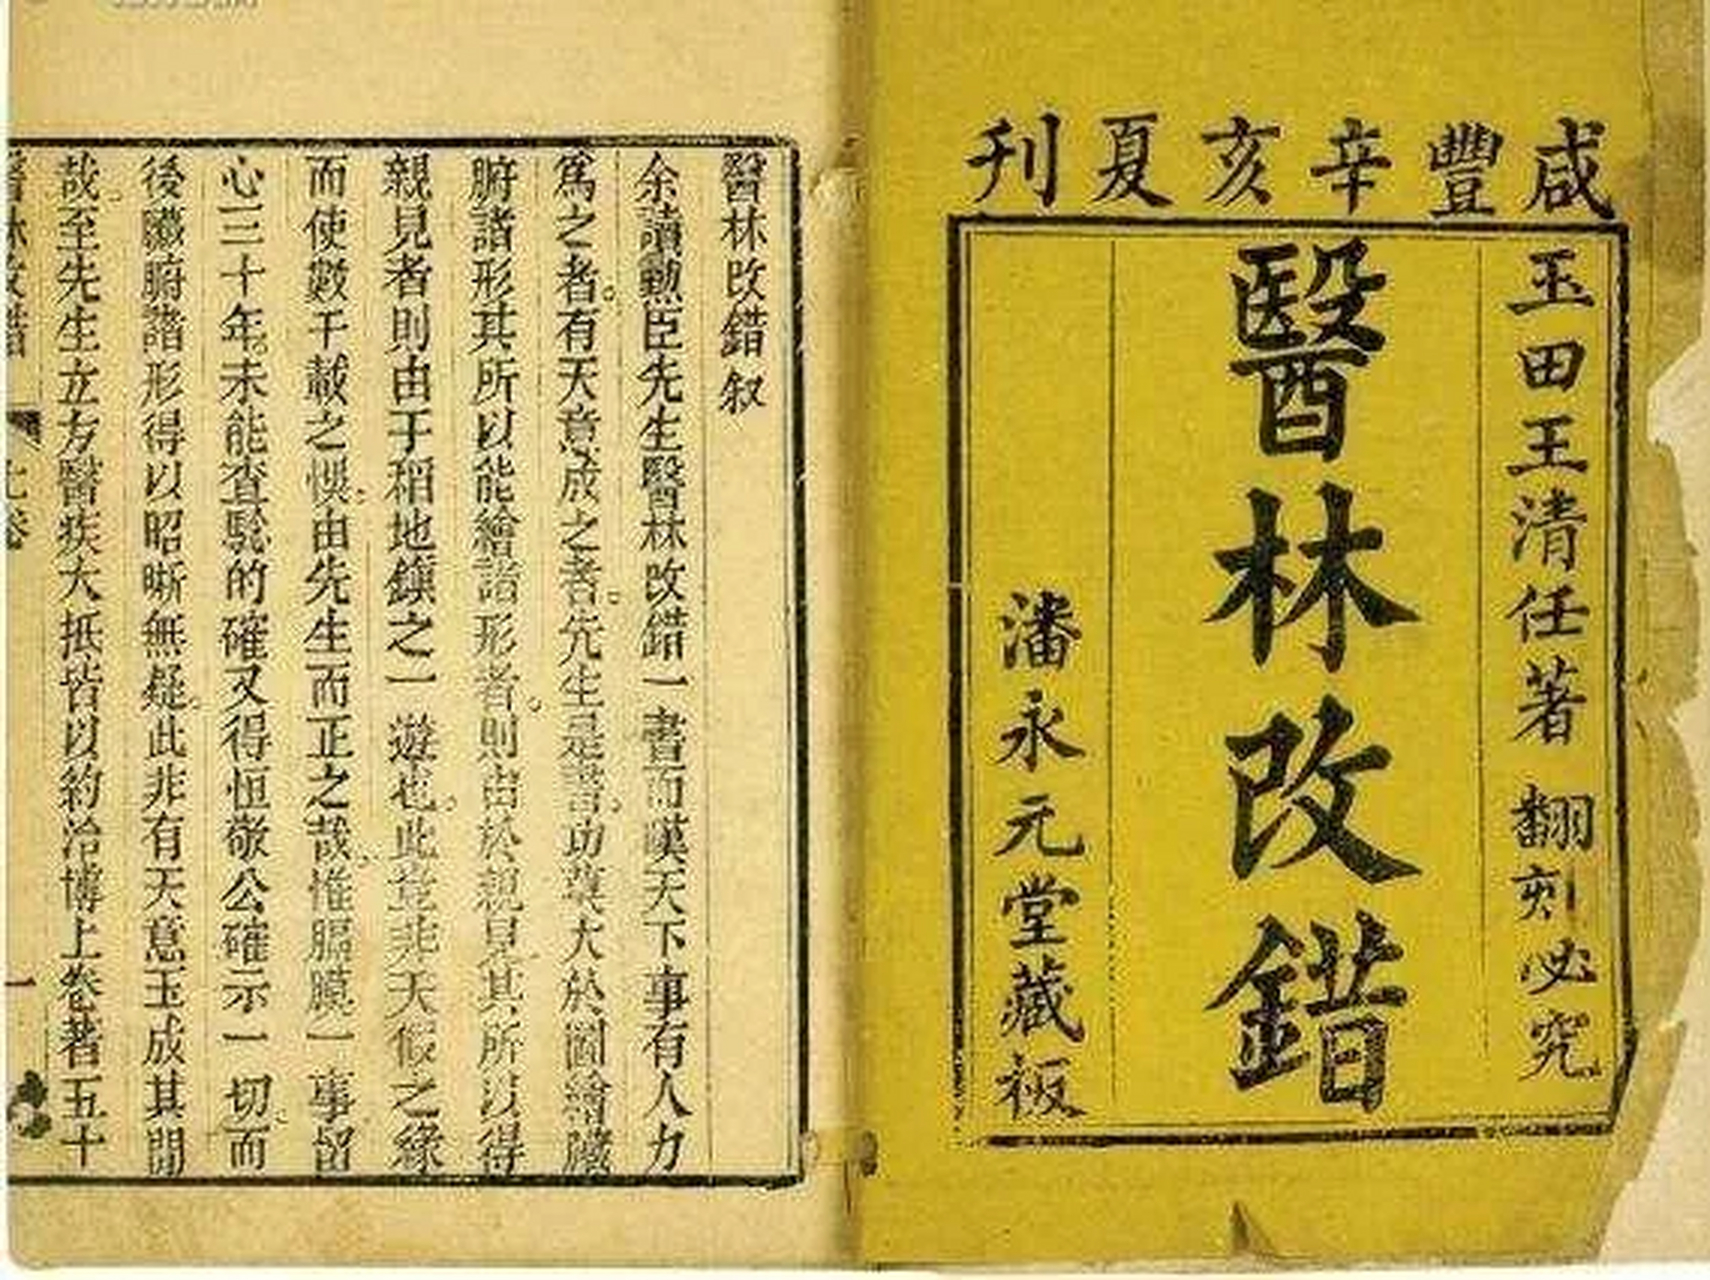 咸豐辛亥夏刊
玉田王清任著 翻刻必究
醫林改錯
潘永元堂藏板
醫林改錯 叙
余讀勳臣先生醫林改錯一書而嘆天下事有人力
爲之者有天意成之者先生是書功莫大於圖繪臟
腑諸形其所以能繪諸形者則由於親見其所以得
親見者則由于稻地鎮之一遊也此豈非天假之緣
而使數千載之悞由先生而正之哉惟膈膜一事留
心三十年未能查驗的確又得恒敬公確示一切而
後臟腑諸形得以昭晰無疑此非有天意玉成其間
哉至先生立方醫疾大抵皆以約治博上卷著五十